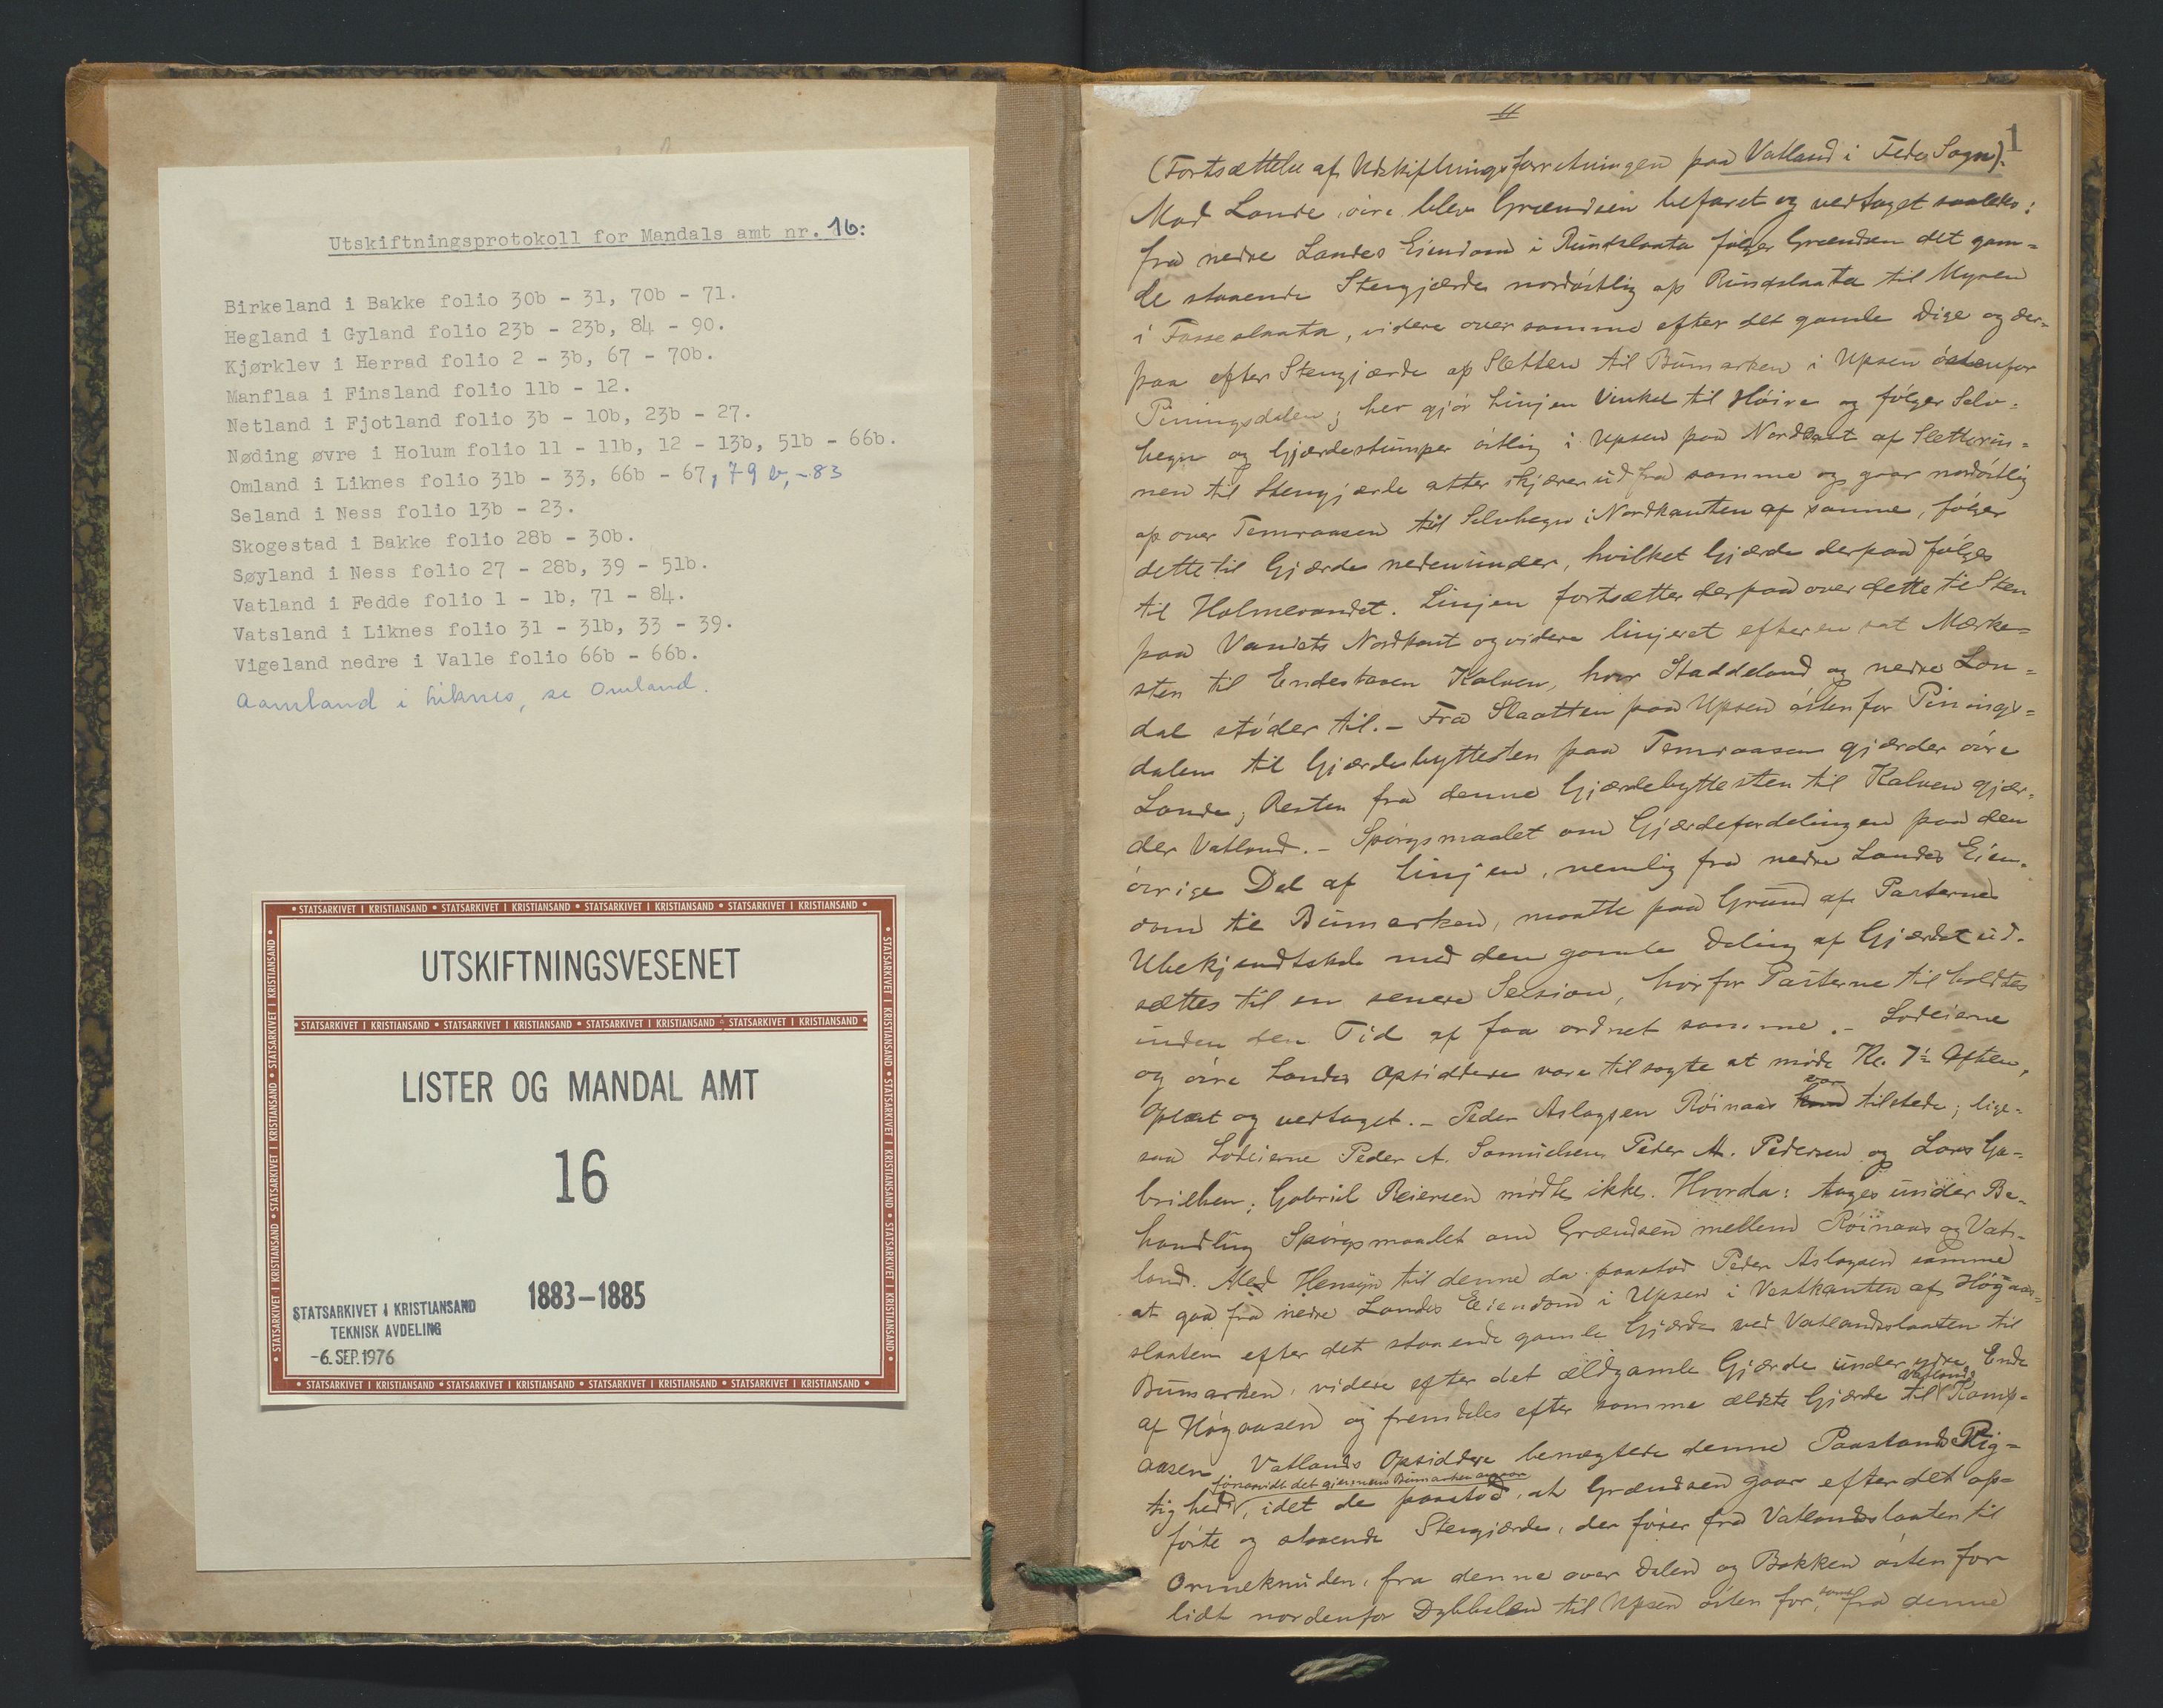 Utskiftningsprotokoll for Mandals amt nr. 16:
Birkeland i Bakke folio 30b - 31, 70b - 71.
Hegland i Gyland folio 23b - 23b, 84 - 90.
Kjørklev i Herrad folio 2 - 3b, 67 - 70b.
Manflaa i Finsland folio 11b - 12.
Netland i Fjotland folio 3b - 10b, 23b - 27.
Nøding øvre i Holum folio 11 - 11b, 12 - 13b, 51b - 66b.
Omland i Liknes folio 31b - 33, 66b - 67, 79 b, - 83
Seland i Ness folio 13b - 23.
Skogestad i Bakke folio 28b - 30b.
Søyland i Ness folio 27 - 28b, 39 - 51b.
Vatland i Fedde folio 1 - 1b, 71 - 84.
Vatsland i Liknes folio 31 - 31b, 33 - 39.
Vigeland nedre i Valle folio 66b - 66b.
Aamland i Liknes, se Omland.
STATSARKIVET I KRISTIANSAND • STATSARKIVET I KRISTIANSAND • STATSARKIVET I KRISTIANSAND • STATSARKIVET I KRISTIANSAND
UTSKIFTNINGSVESENET
STATSARKIVET I KRISTIANSAND • STATSARKIVET I KRISTIANSAND • STATSARKIVET I KRISTIANSAND • STATSARKIVET I KRISTIANSAND
LISTER OG MANDAL AMT
16
1883–1885
STATSARKIVET I KRISTIANSAND
TEKNISK AVDELING
-6. SEP. 1976
STATSARKIVET I KRISTIANSAND • STATSARKIVET I KRISTIANSAND • STATSARKIVET I KRISTIANSAND • STATSARKIVET I KRISTIANSAND
1
(Fortsættelse af Udskiftningsforretningen paa Vatland i Fede Sogn).
Mod Lande øvre blev Grændsen befaret og vedtaget saaledes:
fra nedre Landes Eiendom i Rundslaata følger Grændsen det gam-
le staaende Stengjærde nordøstlig op Rundslaata til Myren
i Fosseslaata, videre over samme efter det gamle Dige og der-
paa efter Stengjærde op Sletten til Bumarken i Upsen østenfor
Piningsdalen; her gjør Linjen Vinkel til Høire og følger Selv-
hegn og Gjærdestumper østlig i Upsen paa Nordkant af
nen til Stengjærde atter skjærer ud fra samme og gaar nordøstlig
op over Temraasen til Selvhegn i Nordkanten af samme, følger
dette til Gjærde nedenunder, hvilket Gjærde derpaa følges
til Holmevandet. Linjen fortsætter derpaa over dette til Sten
paa Vandets Nordkant og videre linjeret efter en sat Mærke-
sten til Endestaven Kalven, hvor Staddeland og nedre Lon-
dal støder til. - Fra Slaatten paa Upsen østenfor Pinings-
dalen til Gjærdebyttesten paa Temraasen gjærder øvre
Lande, Resten fra denne Gjærdebyttesten til Kalven gjær-
der Vatland. - Spørgsmaalet om Gjærdefordelingen paa den
øvrige Del af Linjen, nemlig fra nedre Landes Eien-
dom til Bumarken, maatte paa Grund af Parternes
Ubekjendtskab med den gamle Deling af Gjærdet ud-
sættes til en senere Session, hvorfor Parterne tilholdtes
inden den Tid at faa ordnet samme. - Lodeierne
og øvre Landes Opsiddere vare tilsagte at møde Kl. 7 Aften,
Oplæst og vedtaget. - Peder Aslagsen Röinaas var tilstede; lige-
saa Lodeierne Peder A. Samuelsen, Peder A. Pedersen og Lars Ga-
brielsen; Gabriel Reiersen mødte ikke. Hvorda: toges under Be-
handling Spørgsmaalet om Grændsen mellem Röinaas og Vat-
land. Med Hensyn til denne da paastod Peder Aslagsen samme
at gaa fra nedre Landes Eiendom i Upsen i Vestkanten af Högaas-
slaaten efter det staaende gamle Gjærde ved Vatlandsslaaten til
Bumarken, videre efter det ældgamle Gjærde under ydre Ende
af Högaasen og fremdeles efter samme ældste Gjærde til Vatlands Kamp-
aasen. Vatlands Opsiddere benægtede denne Paastands Rig-
tighed forsaavidt det gjennem Bumarken angaar, idet de paastod, at Grændsen gaar efter det op-
førte og staaende Stengjærde, der fører fra Vatlandsslaaten til
Ormeknuden, fra denne over Dalen og Bakken østenfor
lidt nordenfor til Upsen østen for, samt fra denne